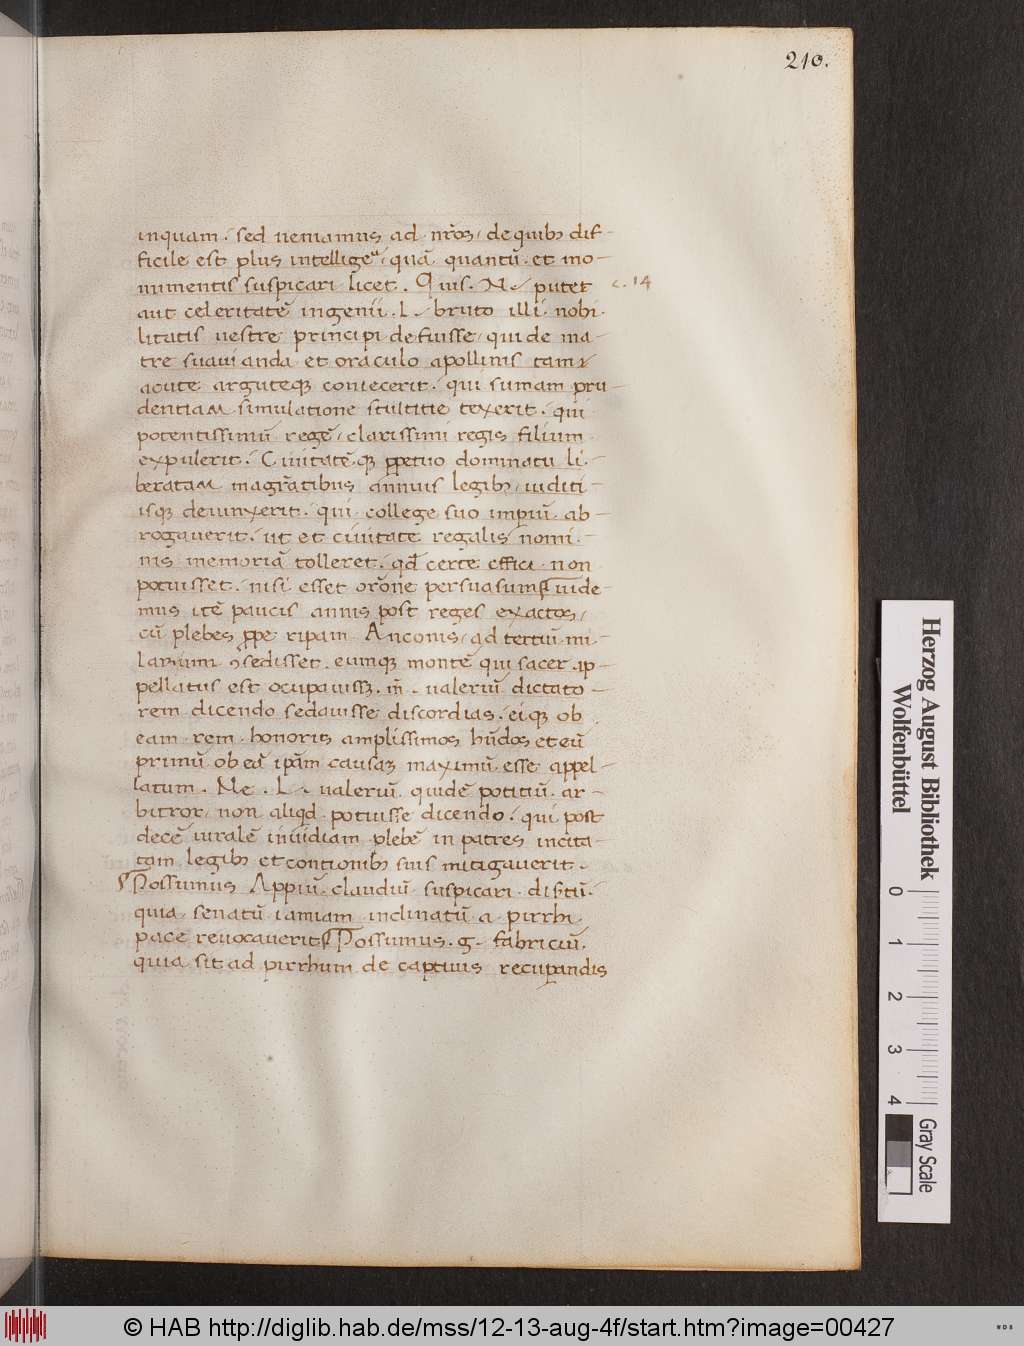 210.
inquam. sed veniamus ad nr̄os, de quib; dif-
ficile est plus intellige͛. quā quantū. et mo-
numentis suspicari licet. Quis. N. putet
c. 14
aut celeritatē ingenii. L. bruto illi. nobi.
litatis vestre principi defuisse, qui de ma-
tre suavianda et oraculo apollinis tam
acute arguteq; coniecerit. qui sumam pru-
dentiam simulatione stultitie texerit. qui
potentissimū regē, clarissimi regis filium
expulerit. Civitatēq; ꝑpetuo dominatu li-
beratam magr̄atibus annuis legib; iuditi-
isq; deiunxerit. qui college suo imperiū ab
rogaverit. ut et civitate regalis nomi-
nis memoriā tolleret. qd̄ certe effici non
potuisset. nisi esset orōne persuasum vide
mus itē paucis annis post reges exactos,
cū plebes ꝓpe ripam Anconis, ad tertiū mi-
larium ꝯsedisset. eumq; montē qui sacer ap-
pellatus est ocupavisset. m̄. valeriū dictato-
rem dicendo sedavisse discordias. eiq; ob
eam rem honoris amplissimos hūdos et eū
primū ob eā ipām causam maximū esse appel-
latum. Ne. L. valeriū quidē potitiū ar-
bitror, non aliqd potuisse dicendo. qui post
decē viralē invidiam plebē in patres incita
tam legib; et contionib; suis mitigaverit.
Possumus Appiū claudiū suspicari disꝉtū.
quia senatū iamiam inclinatū a pirrhi
pace revocaverit Possumus. g. fabriciū.
quia sit ad pirrhum de captivis recuperandis
Herzog August Bibliothek
Wolfenbüttel
0 1 2 3 4
Gray Scale
© HAB http://diglib.hab.de/mss/12-13-aug-4f/start.htm?image=00427